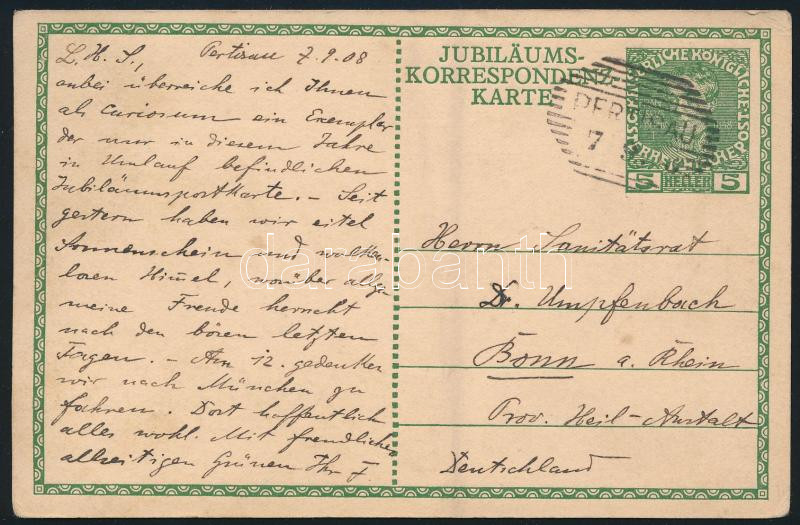 L. H. S., Pertisau 7.9.08
anbei überreiche ich Ihnen
als Curiosum ein Exemplar
der nur in diesem Jahre
in Umlauf befindlichen
Jubiläumspostkarte. – Seit
gestern haben wir eitel
Sonnenschein und wolken-
losen Himel, worüber allge-
meine Freude herrscht
nach den bösen letzten
Tagen. – Am 12. gedenken
wir nach München zu
fahren. Dort hoffentlich
alles wohl. Mit freundlichen
allseitigen Grüssen Ihr F.
JUBILÄUMS-
KORRESPONDENZ-
KARTE
5 HELLER 5
PERTISAU
7 9
Herrn Sanitätsrat
Dr. Umpfenbach
Bonn a. Rhein
Prov. Heil-Anstalt
Deutschland
darabanth